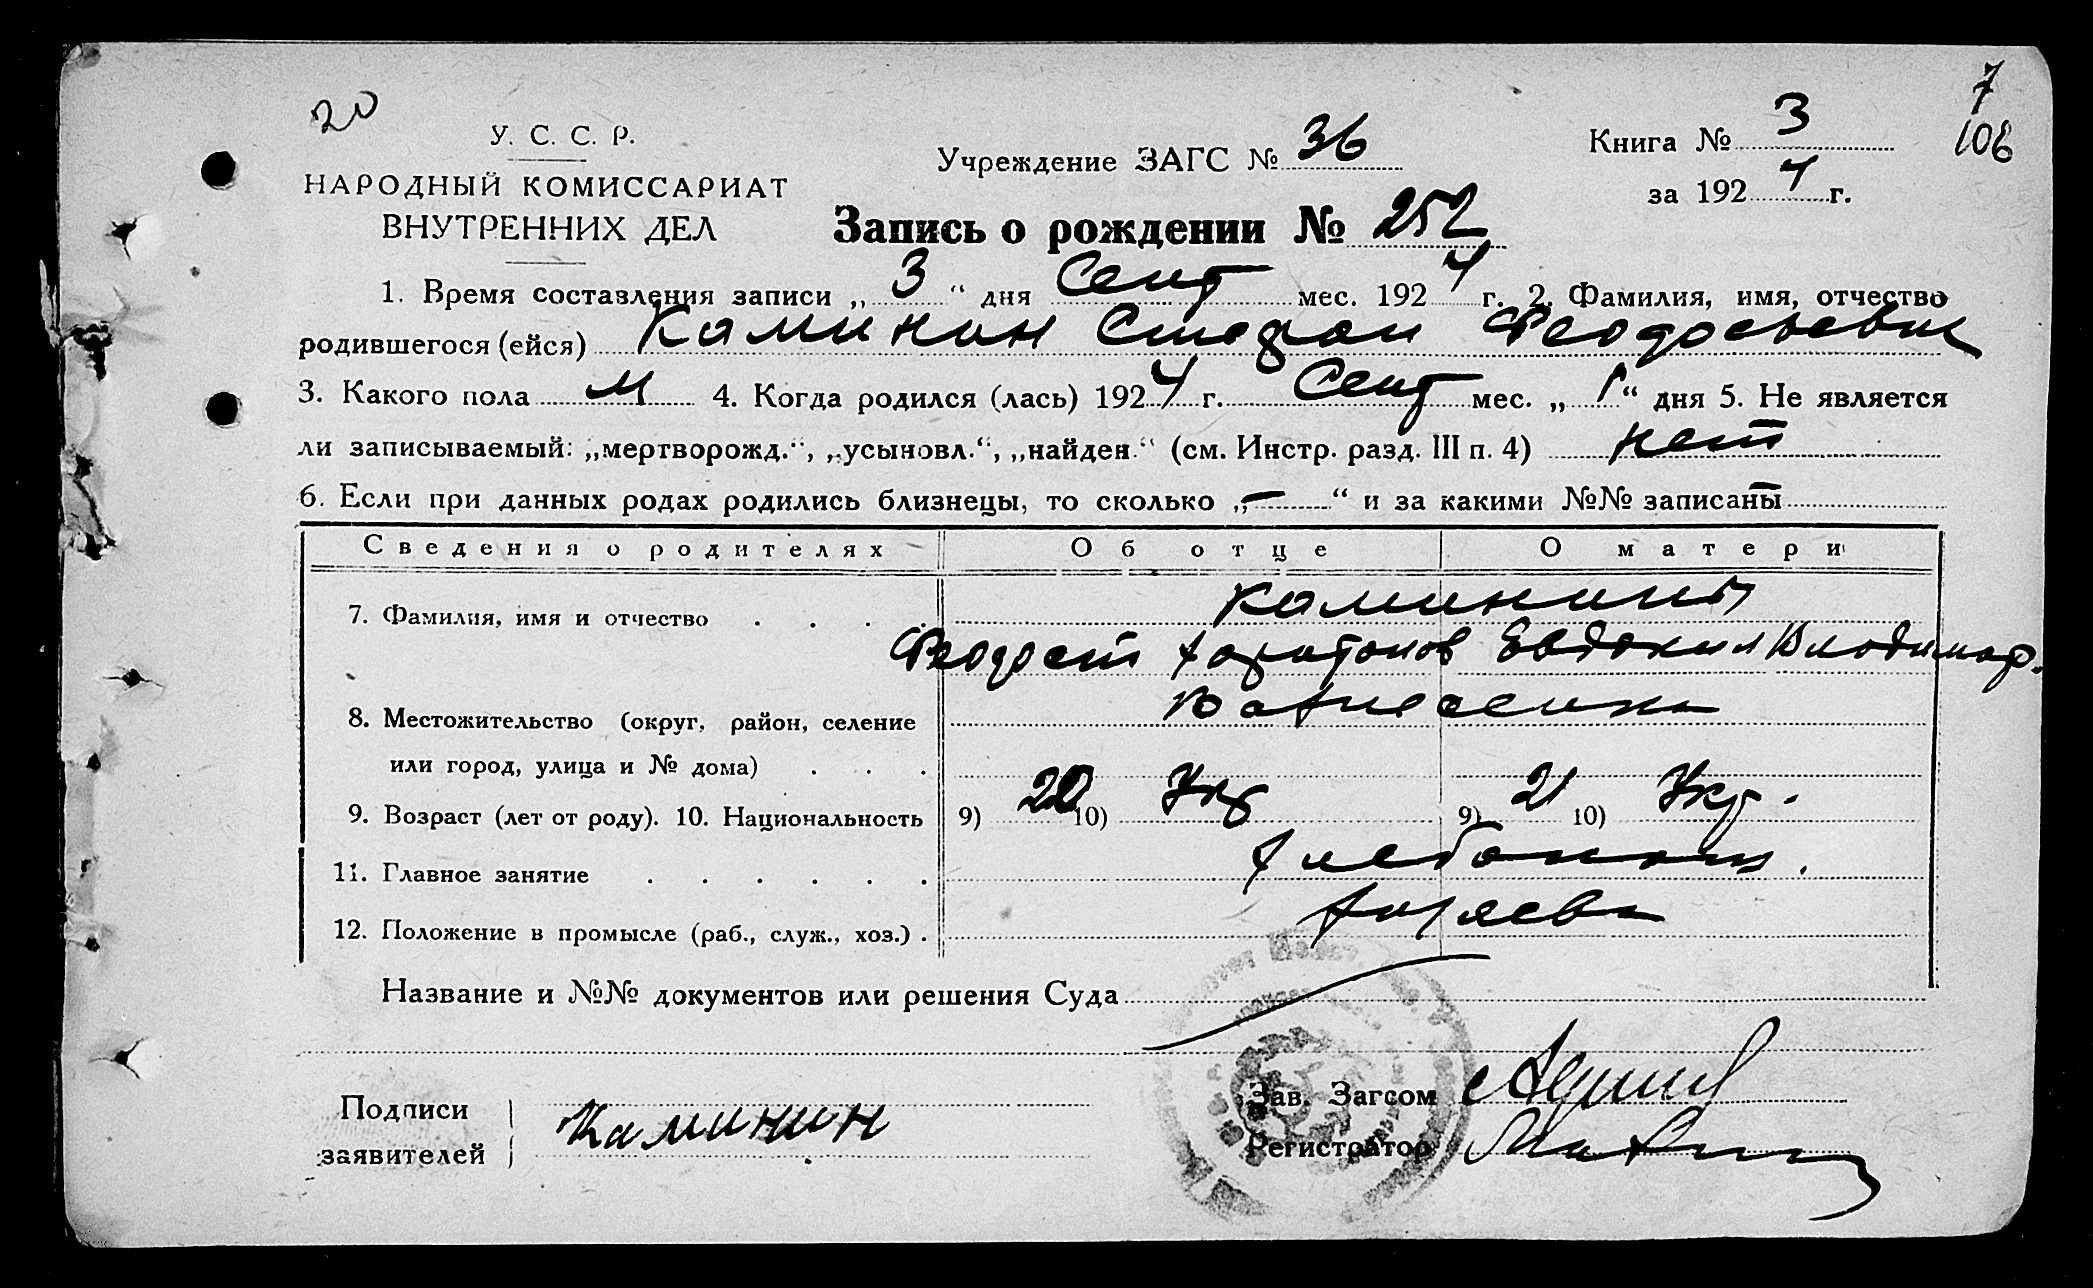 20
7
106
У. С. С. Р.
НАРОДНЫЙ КОМИССАРИАТ
ВНУТРЕННИХ ДЕЛ
Учреждение ЗАГС № 36
Книга № 3
за 1924 г.
Запись о рождении № 252
1. Время составления записи „ 3 “ дня Сент мес. 1924 г. 2. Фамилия, имя, отчество
родившегося (ейся) Каминин Стефан Феодосьевич
3. Какого пола М 4. Когда родился (лась) 1924 г. Сент мес. „ 1 “ дня 5. Не является
ли записываемый: „мертворожд.“, „усыновл.“, „найден.“ (см. Инстр. разд. III п. 4) нет
6. Если при данных родах родились близнецы, то сколько „ — “ и за какими №№ записаны —
Сведения о родителях Об отце О матери
7. Фамилия, имя и отчество . . . . Каминины
Феодосий Харитонов Евдокия Владимир.
8. Местожительство (округ, район, селение
или город, улица и № дома) . . .
9. Возраст (лет от роду). 10. Национальность 9) 20 10) Укр 9) 21 10) Укр.
11. Главное занятие . . . . . . Хлебопаш.
12. Положение в промысле (раб., служ., хоз.) . Хозяева
Название и №№ документов или решения Суда
Подписи
заявителей
Каминин
Зав. Загсом
Регистратор